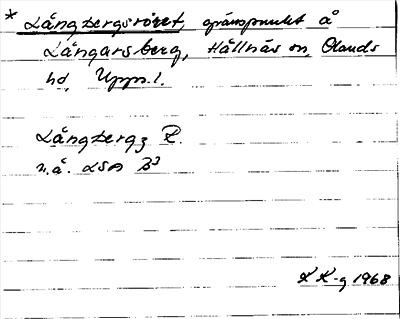 * Långbergsröret, gränspunkt å
Långarsberg, Hållnäs sn, Olands
hd, Upps. l.
Långbergz R.
u.å. LSA B3
K K-g 1968